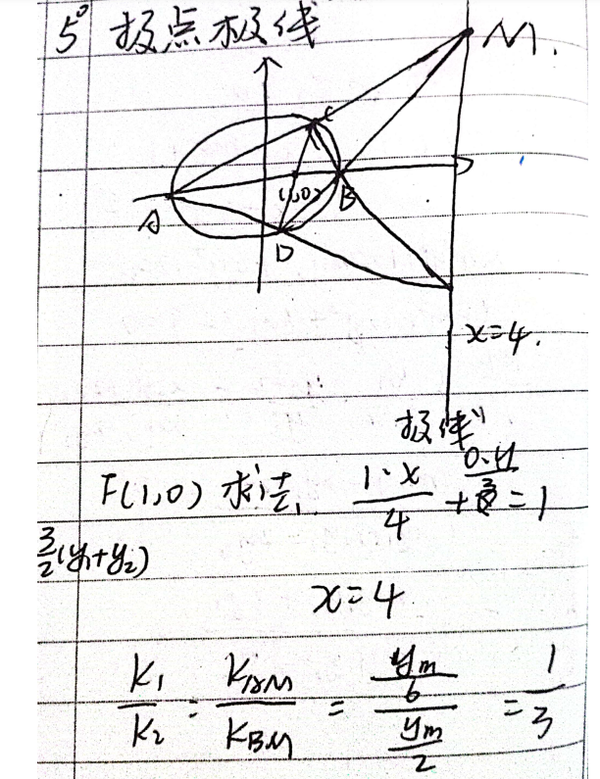 5° 极点极线
M.
C
(1,0)
A
B
D
x=4.
极线
F(1,0) 求法, 1·x/4 + 0·y/3 = 1
3/2(y₁+y₂)
x=4
K₁/K₂ = K_AM/K_BM = (y_m/6)/(y_m/2) = 1/3